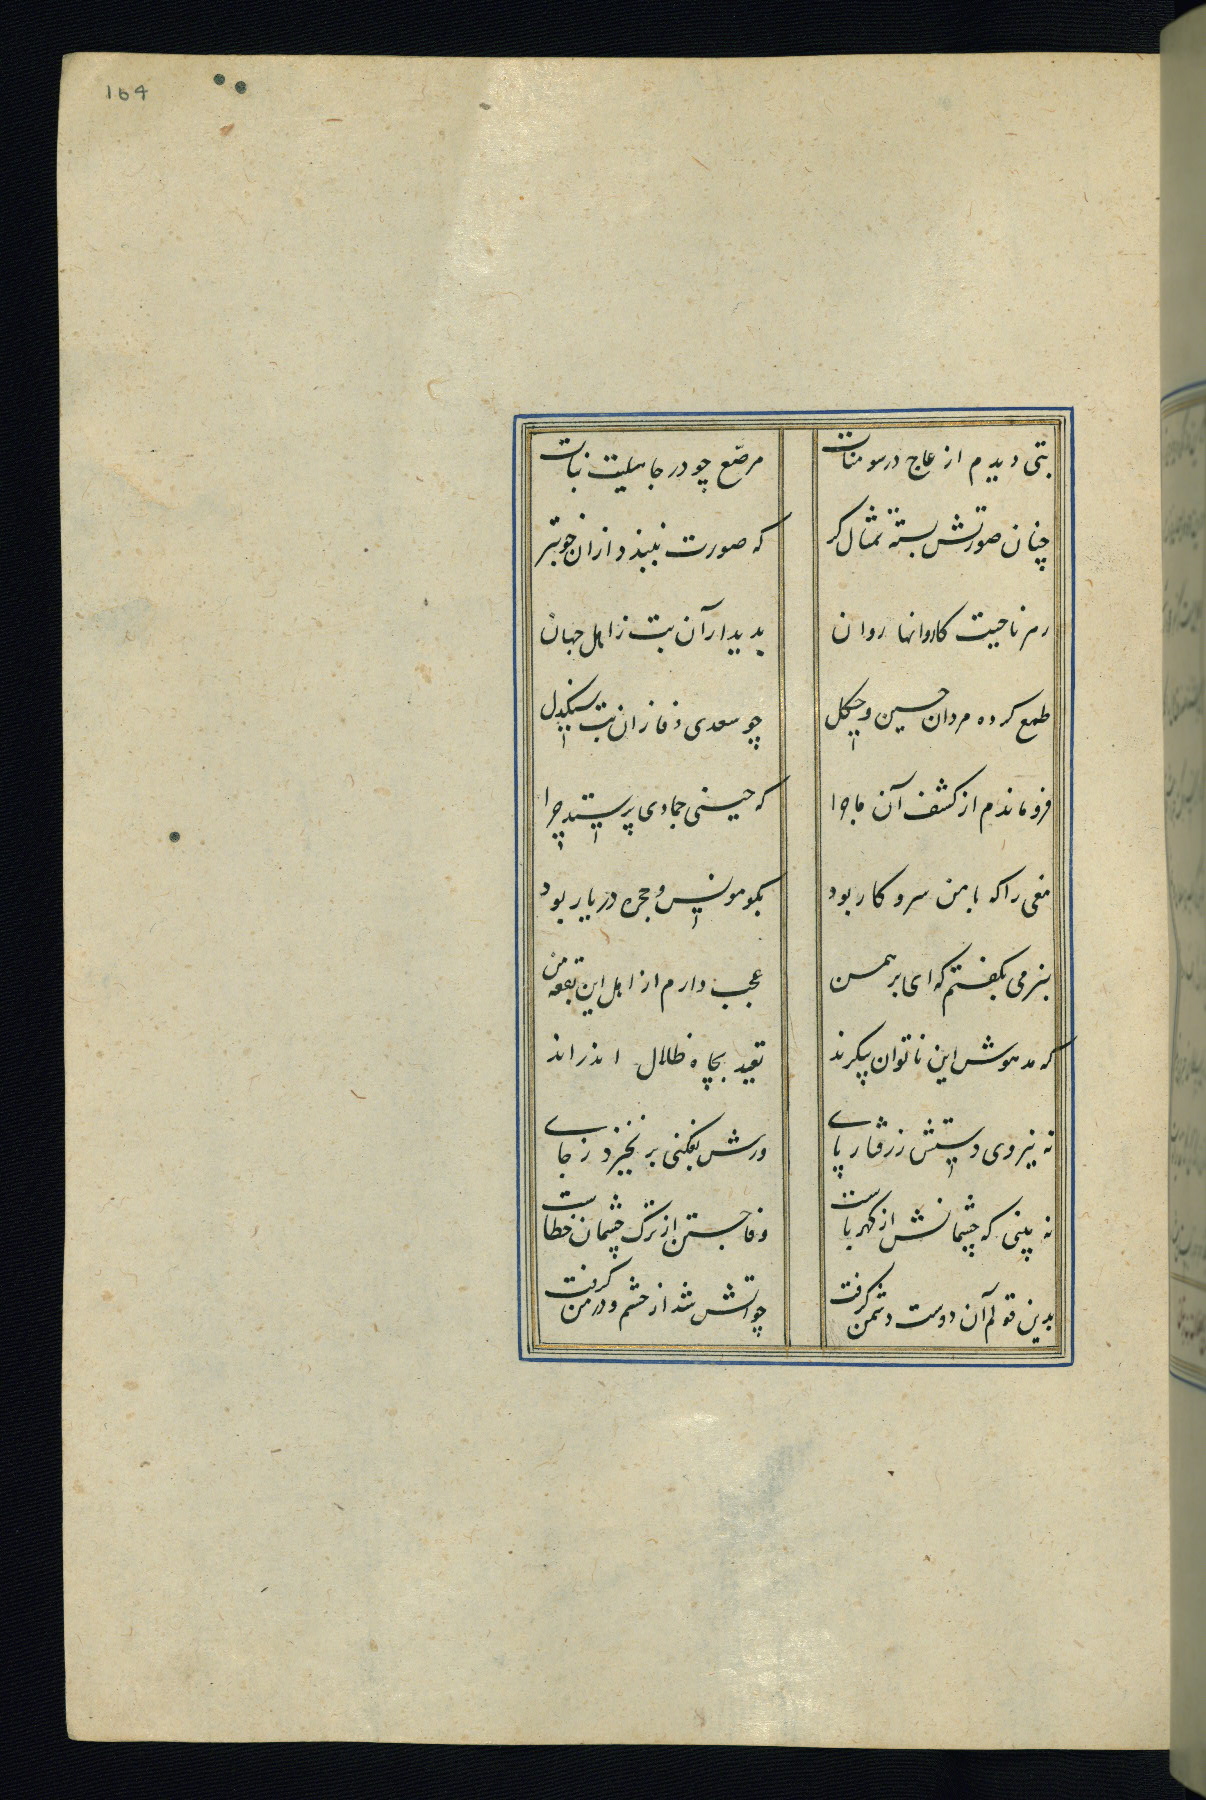 164
بتی دیدم از عاج در سومنات مرصّع چو در جاهلیت منات
چنان صورتش بسته تمثال کر که صورت نبندد از ان خوبتر
ز هر ناحیت کاروانها روان بدیدار آن بت ز اهل جهان
طمع کرده مردان حسین و چگل چو سعدی وفا زان بت سنکدل
فرو ماندم از کشف آن ماجرا که حینی جمادی پرستد چرا
مغی را که با من سر و کار بود نکو مونس و حجره در یار بود
بنرمی بکفتم که ای برهمن عجب دارم از اهل این بقعه من
که مدهوش این ناتوان پیکرند مقید بچاه ظلال اندراند
نه نیروی دستش نه رفتار پای ورش بفکنی بر نخیزد ز جای
نه بینی که چشمانش از کهرباست وفا جستن از ترک چشمان خطاست
بدین قولم آن دوست دشمن کرفت چو آتش شد از خشم و در من کرفت